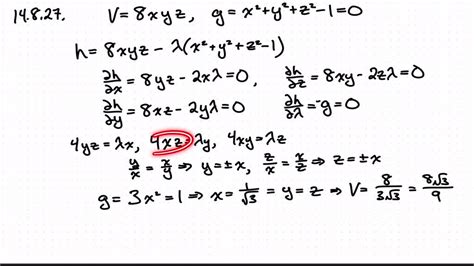 14.8.27. V=8xyz, g=x²+y²+z²-1=0
h=8xyz-λ(x²+y²+z²-1)
∂h/∂x=8yz-2xλ=0, ∂h/∂z=8xy-2zλ=0
∂h/∂y=8xz-2yλ=0 ∂h/∂λ=-g=0
4yz=λx, 4xz=λy, 4xy=λz
y/x=x/y⇒y=±x, z/x=x/z⇒z=±x
g=3x²=1⇒x=1/√3=y=z⇒V=8/3√3=8√3/9